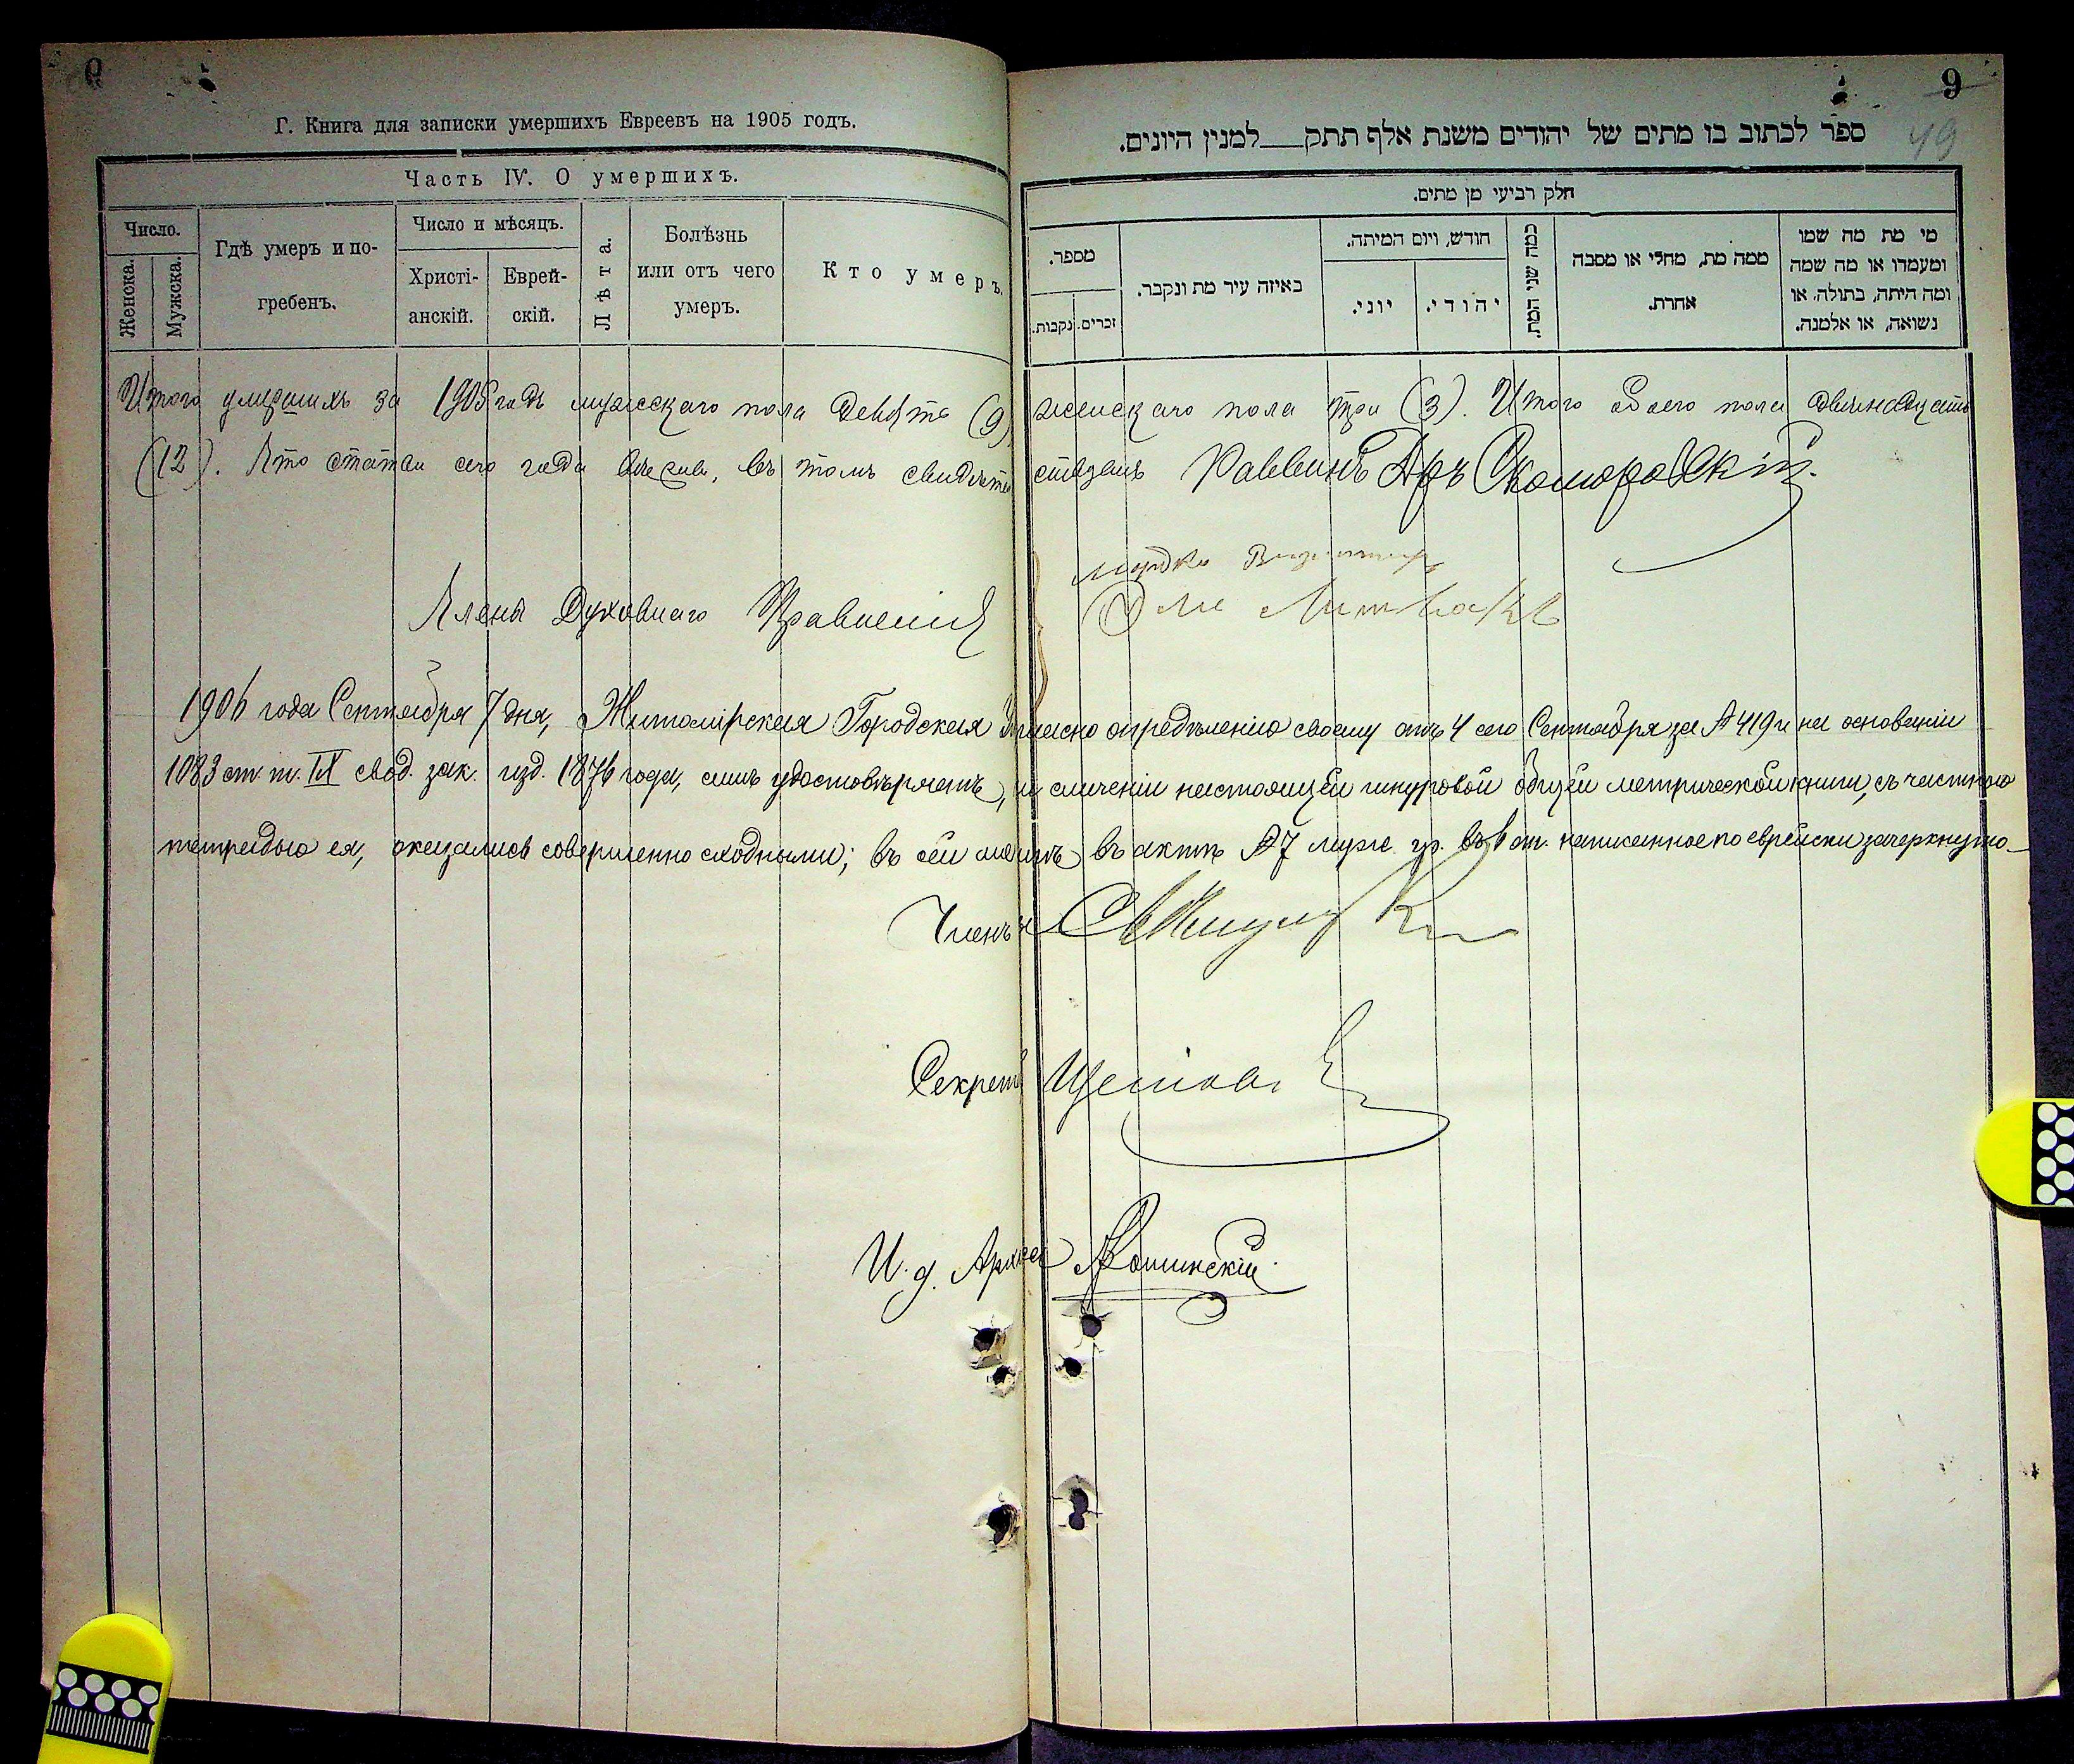 9
9
49
Г. Книга для записки умершихъ Евреевъ на 1905 годъ.
ספר לכתוב בו מתים של יהודים משנת אלף תתק___למנין היונים.
Часть IV. О умершихъ.
חלק רביעי מן מתים.
Число.
Женска.
Мужска.
Гдѣ умеръ и по-
гребенъ.
Число и мѣсяцъ.
Христі-
анскій.
Еврей-
скій.
Лѣта.
Болѣзнь
или отъ чего
умеръ.
Кто умеръ.
מספר.
נקבות.
זכרים.
באיזה עיר מת ונקבר.
חודש, ויום המיתה.
יוני.
יהודי.
כמה שני המת.
ממה מת, מחלי או מסבה
אחרת.
מי מת מה שמו
ומעמדו או מה שמה
ומה היתה, בתולה, או
נשואה, או אלמנה.
Итого умершихъ за 1905 годъ мужескаго пола девять (9) женскаго пола три (3). Итого обоего пола двенадцать
(12). Что статьи сего года вѣрны, въ томъ свидѣтельствуемъ Раввинъ Аръ Скоморовскій.
Мордко
Члены Духовнаго Правленія
Эле Литвакъ
1906 года Сентября 7 дня, Житомірская Городская согласно опредѣленію своему отъ 4 сего Сентября за № 419 и на основаніи
1083 ст. т. IX свод. зак. изд. 1876 года, симъ удостовѣряетъ, сличеніи настоящей шнуровой общей метрической книги, съ частною
тетрадью ея, оказались совершенно сходными; въ сей въ актѣ № 7 муж. гр. въ 6 ст. написанное по еврейски зачеркнуто
Членъ
Секрет
И. д. Архив